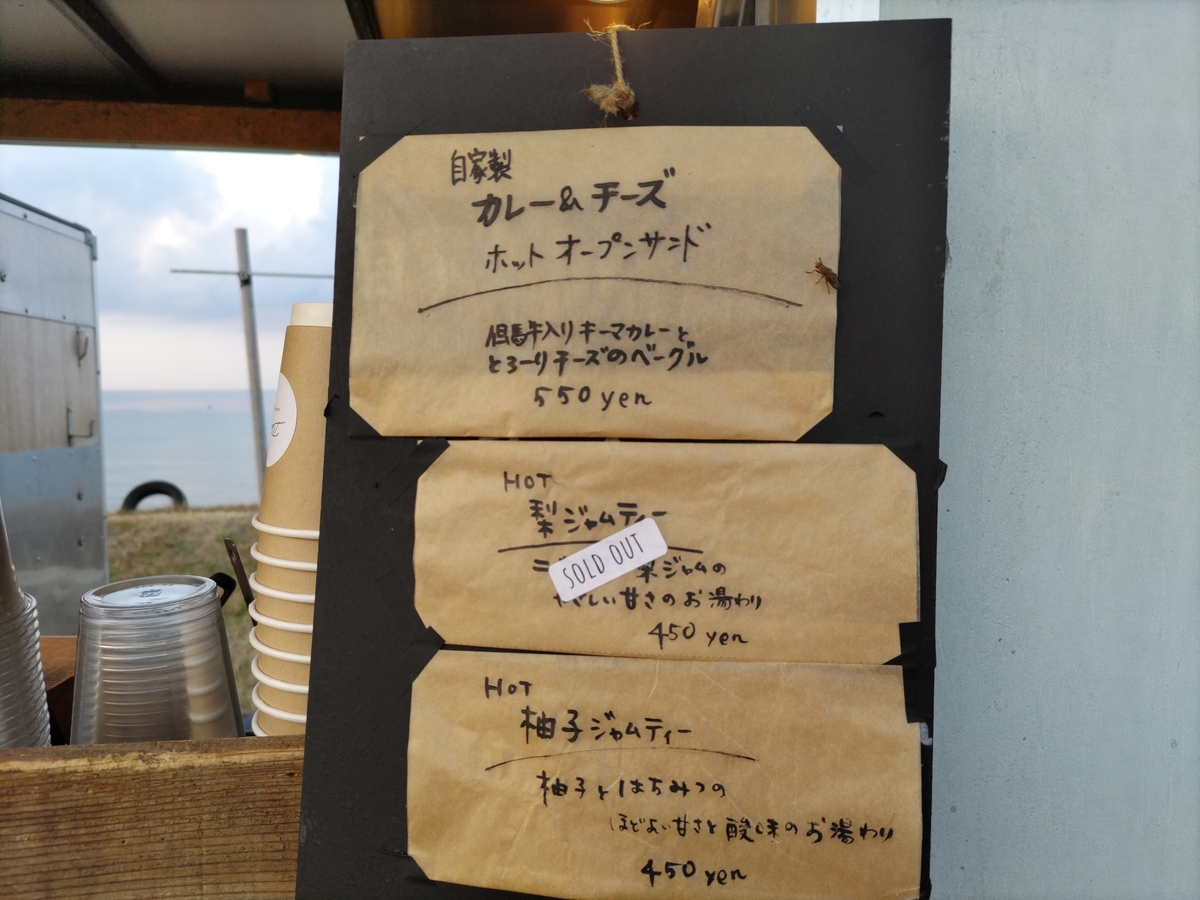 自家製
カレー&チーズ
ホットオープンサンド
但馬牛入りキーマカレーと
とろーりチーズのベーグル
550yen
HOT
梨ジャムティー
SOLD OUT
梨ジャムの
やさしい甘さのお湯わり
450yen
HOT
柚子ジャムティー
柚子とはちみつの
ほどよい甘さと酸味のお湯わり
450yen